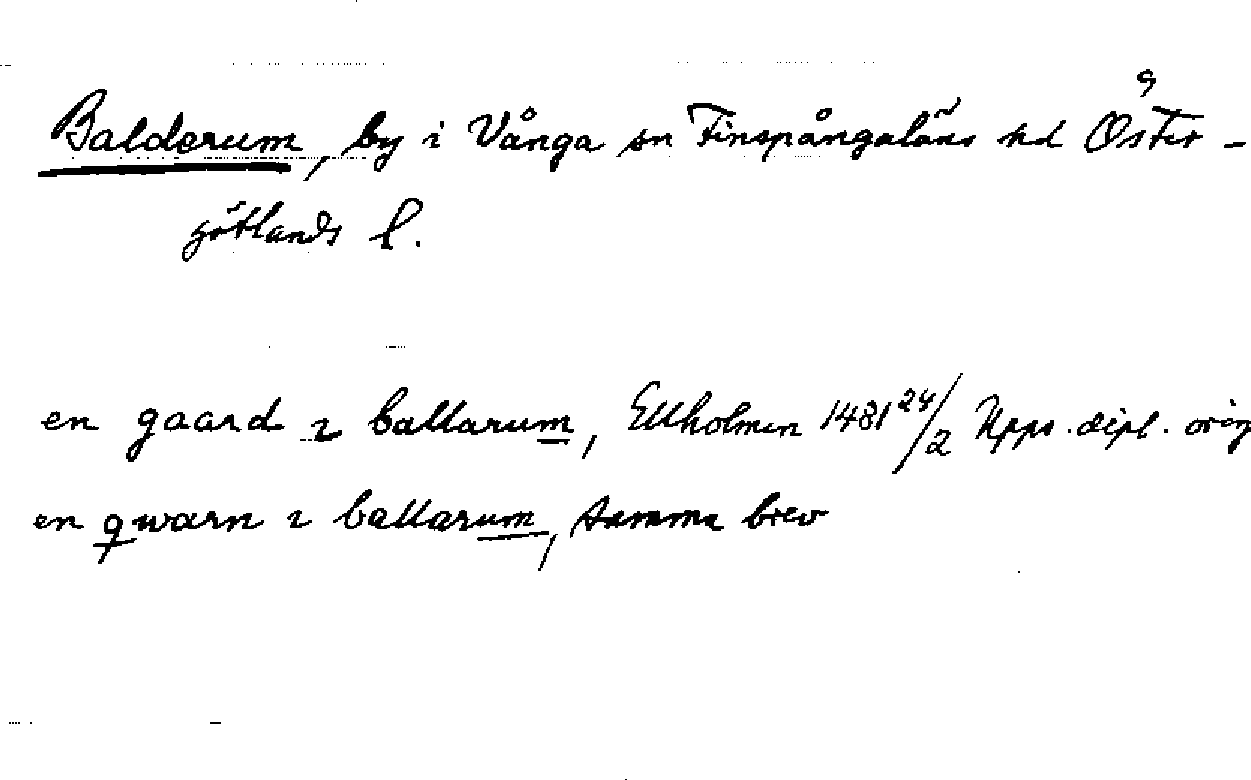 Balderum, by i Vånga sn Finspångaläns hd Öster-
götlands l.
en gaard i ballarum, Ellholmen 1481 24/2 Upps. dipl. orig
en qwarn i ballarum, samma brev